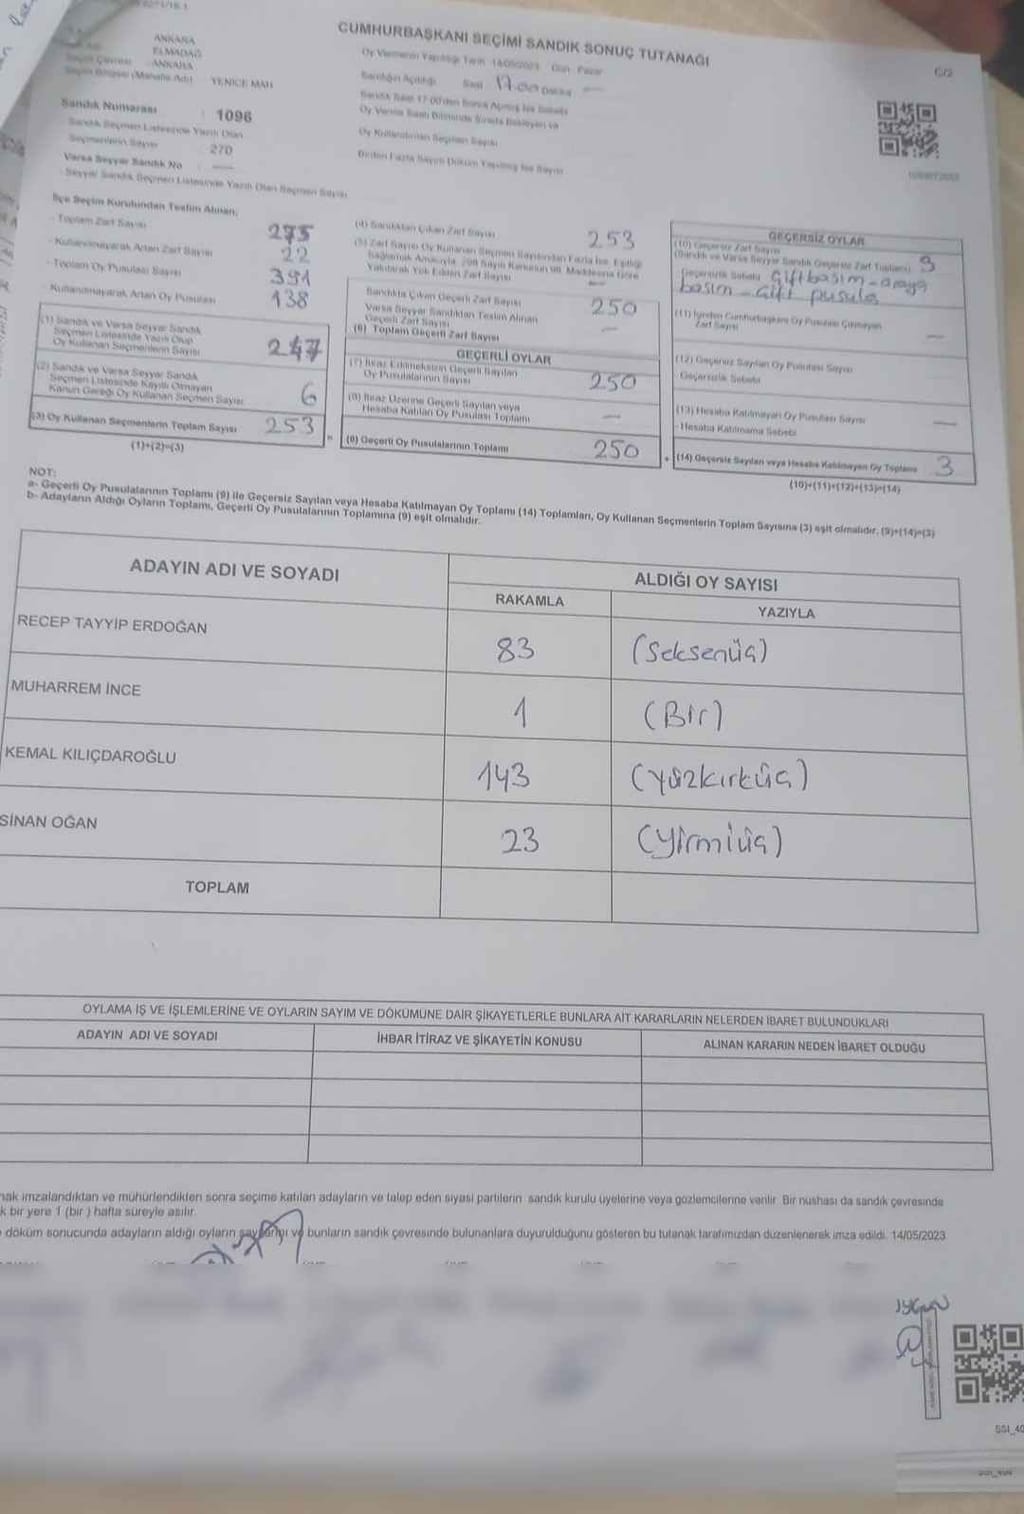 CUMHURBAŞKANI SEÇİMİ SANDIK SONUÇ TUTANAĞI
ANKARA
ELMADAĞ
ANKARA
YENİCE MAH
Oy Vermenin Yapıldığı Tarih 14/05/2023 Gün Pazar
Sandığın Açıldığı Saat 17.00 Dakika —
Sandık Numarası : 1096
Sandık Seçmen Listesinde Yazılı Olan
Seçmenlerin Sayısı : 270
Varsa Seyyar Sandık No —
Seyyar Sandık Seçmen Listesinde Yazılı Olan Seçmen Sayısı
Oy Kullandırılan Seçmen Sayısı
Birden Fazla Sayım Döküm Yapılmış İse Sayısı
İlçe Seçim Kurulundan Teslim Alınan;
- Toplam Zarf Sayısı 275
- Kullanılmayarak Artan Zarf Sayısı 22
- Toplam Oy Pusulası Sayısı 391
- Kullanılmayarak Artan Oy Pusulası 138
(1) Sandık ve Varsa Seyyar Sandık
Seçmen Listesinde Yazılı Olup
Oy Kullanan Seçmenlerin Sayısı 247
(2) Sandık ve Varsa Seyyar Sandık
Seçmen Listesinde Kayıtlı Olmayan
Kanun Gereği Oy Kullanan Seçmen Sayısı 6
(3) Oy Kullanan Seçmenlerin Toplam Sayısı 253
(1)+(2)=(3)
(4) Sandıktan Çıkan Zarf Sayısı 253
(5) Zarf Sayısı Oy Kullanan Seçmen Sayısından Fazla İse, Eşitliği
Sağlamak Amacıyla, 298 Sayılı Kanunun 98. Maddesine Göre
Yakılarak Yok Edilen Zarf Sayısı —
Sandıkta Çıkan Geçerli Zarf Sayısı 250
Varsa Seyyar Sandıktan Teslim Alınan
Geçerli Zarf Sayısı —
(6) Toplam Geçerli Zarf Sayısı
GEÇERLİ OYLAR
(7) İtiraz Edilmeksizin Geçerli Sayılan
Oy Pusulalarının Sayısı 250
(8) İtiraz Üzerine Geçerli Sayılan veya
Hesaba Katılan Oy Pusulası Toplamı —
(9) Geçerli Oy Pusulalarının Toplamı 250
GEÇERSİZ OYLAR
(10) Geçersiz Zarf Sayısı
(Sandık ve Varsa Seyyar Sandık Geçersiz Zarf Toplamı) 3
Geçersizlik Sebebi Çift basım - araya
basım - çift pusula
(11) İçinden Cumhurbaşkanı Oy Pusulası Çıkmayan
Zarf Sayısı —
(12) Geçersiz Sayılan Oy Pusulası Sayısı
Geçersizlik Sebebi
(13) Hesaba Katılmayan Oy Pusulası Sayısı —
- Hesaba Katılmama Sebebi
(14) Geçersiz Sayılan veya Hesaba Katılmayan Oy Toplamı 3
(10)+(11)+(12)+(13)=(14)
NOT:
a- Geçerli Oy Pusulalarının Toplamı (9) ile Geçersiz Sayılan veya Hesaba Katılmayan Oy Toplamı (14) Toplamları, Oy Kullanan Seçmenlerin Toplam Sayısına (3) eşit olmalıdır. (9)+(14)=(3)
b- Adayların Aldığı Oyların Toplamı, Geçerli Oy Pusulalarının Toplamına (9) eşit olmalıdır.
ADAYIN ADI VE SOYADI
ALDIĞI OY SAYISI
RAKAMLA YAZIYLA
RECEP TAYYİP ERDOĞAN 83 (Seksenüç)
MUHARREM İNCE 1 (Bir)
KEMAL KILIÇDAROĞLU 143 (Yüzkırküç)
SİNAN OĞAN 23 (Yirmiüç)
TOPLAM
OYLAMA İŞ VE İŞLEMLERİNE VE OYLARIN SAYIM VE DÖKÜMÜNE DAİR ŞİKAYETLERLE BUNLARA AİT KARARLARIN NELERDEN İBARET BULUNDUKLARI
ADAYIN ADI VE SOYADI İHBAR İTİRAZ VE ŞİKAYETİN KONUSU ALINAN KARARIN NEDEN İBARET OLDUĞU
imzalandıktan ve mühürlendikten sonra seçime katılan adayların ve talep eden siyasi partilerin sandık kurulu üyelerine veya gözlemcilerine verilir. Bir nushası da sandık çevresinde
bir yere 1 (bir ) hafta süreyle asılır.
döküm sonucunda adayların aldığı oyların ve bunların sandık çevresinde bulunanlara duyurulduğunu gösteren bu tutanak tarafımızdan düzenlenerek imza edildi. 14/05/2023